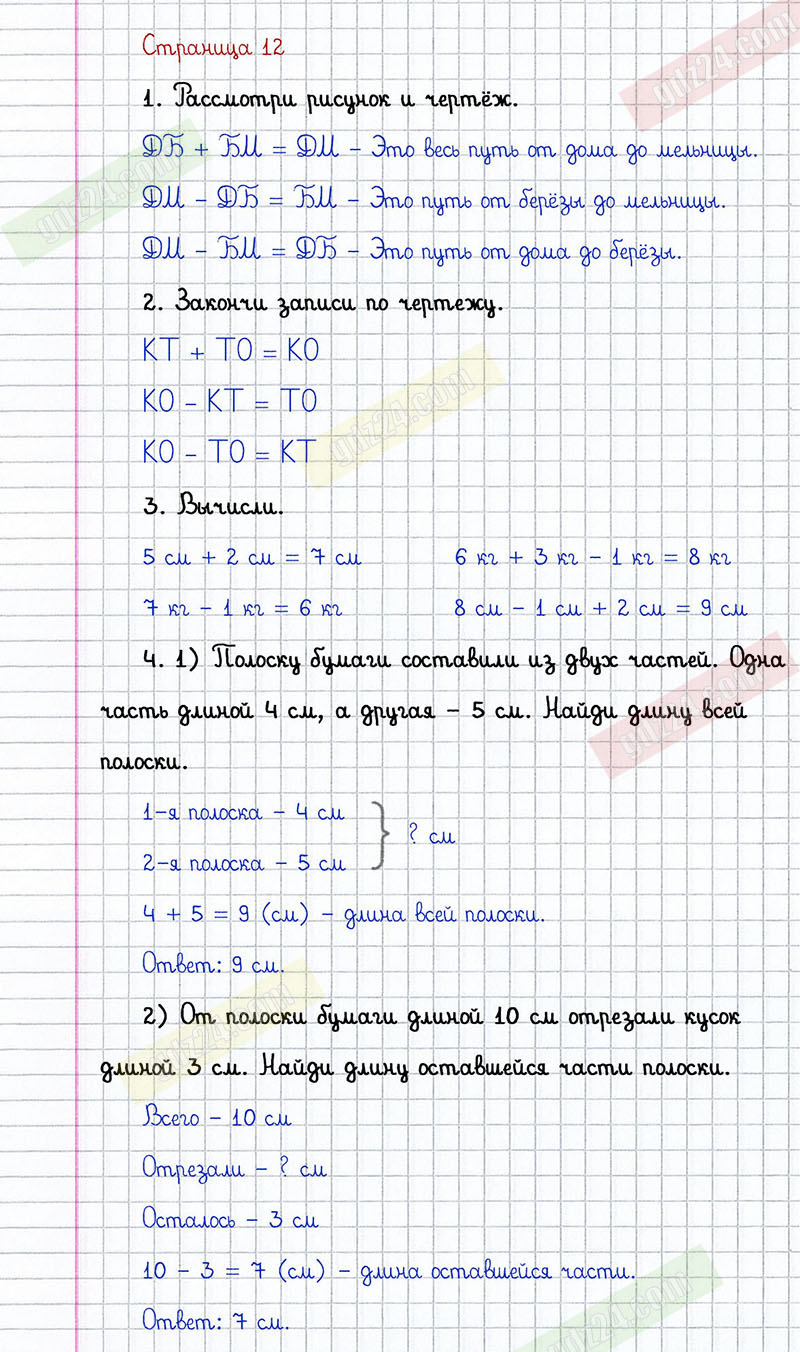 Страница 12
1. Рассмотри рисунок и чертёж.
ДБ + БМ = ДМ – Это весь путь от дома до мельницы.
ДМ – ДБ = БМ – Это путь от берёзы до мельницы.
ДМ – БМ = ДБ – Это путь от дома до берёзы.
2. Закончи записи по чертежу.
КТ + ТО = КО
КО – КТ = ТО
КО – ТО = КТ
3. Вычисли.
5 см + 2 см = 7 см 6 кг + 3 кг – 1 кг = 8 кг
7 кг – 1 кг = 6 кг 8 см – 1 см + 2 см = 9 см
4. 1) Полоску бумаги составили из двух частей. Одна
часть длиной 4 см, а другая – 5 см. Найди длину всей
полоски.
1-я полоска – 4 см
? см
2-я полоска – 5 см
4 + 5 = 9 (см) – длина всей полоски.
Ответ: 9 см.
2) От полоски бумаги длиной 10 см отрезали кусок
длиной 3 см. Найди длину оставшейся части полоски.
Всего – 10 см
Отрезали – ? см
Осталось – 3 см
10 – 3 = 7 (см) – длина оставшейся части.
Ответ: 7 см.
gdz24.com
gdz24.com
gdz24.com
gdz24.com
gdz24.com
gdz24.com